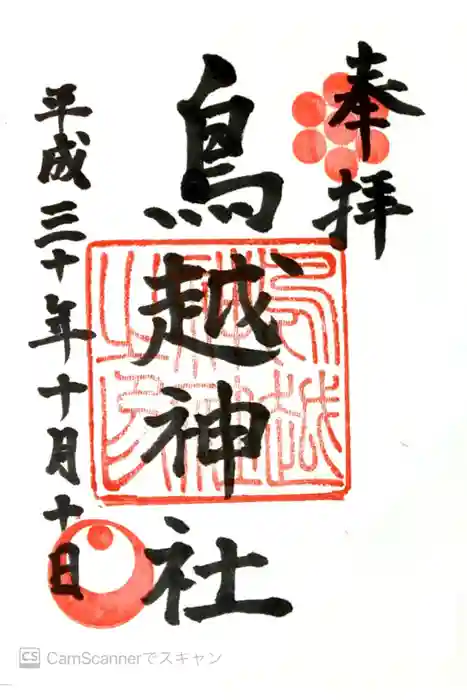 奉拝
鳥越神社
平成三十年十月十日
CS CamScannerでスキャン